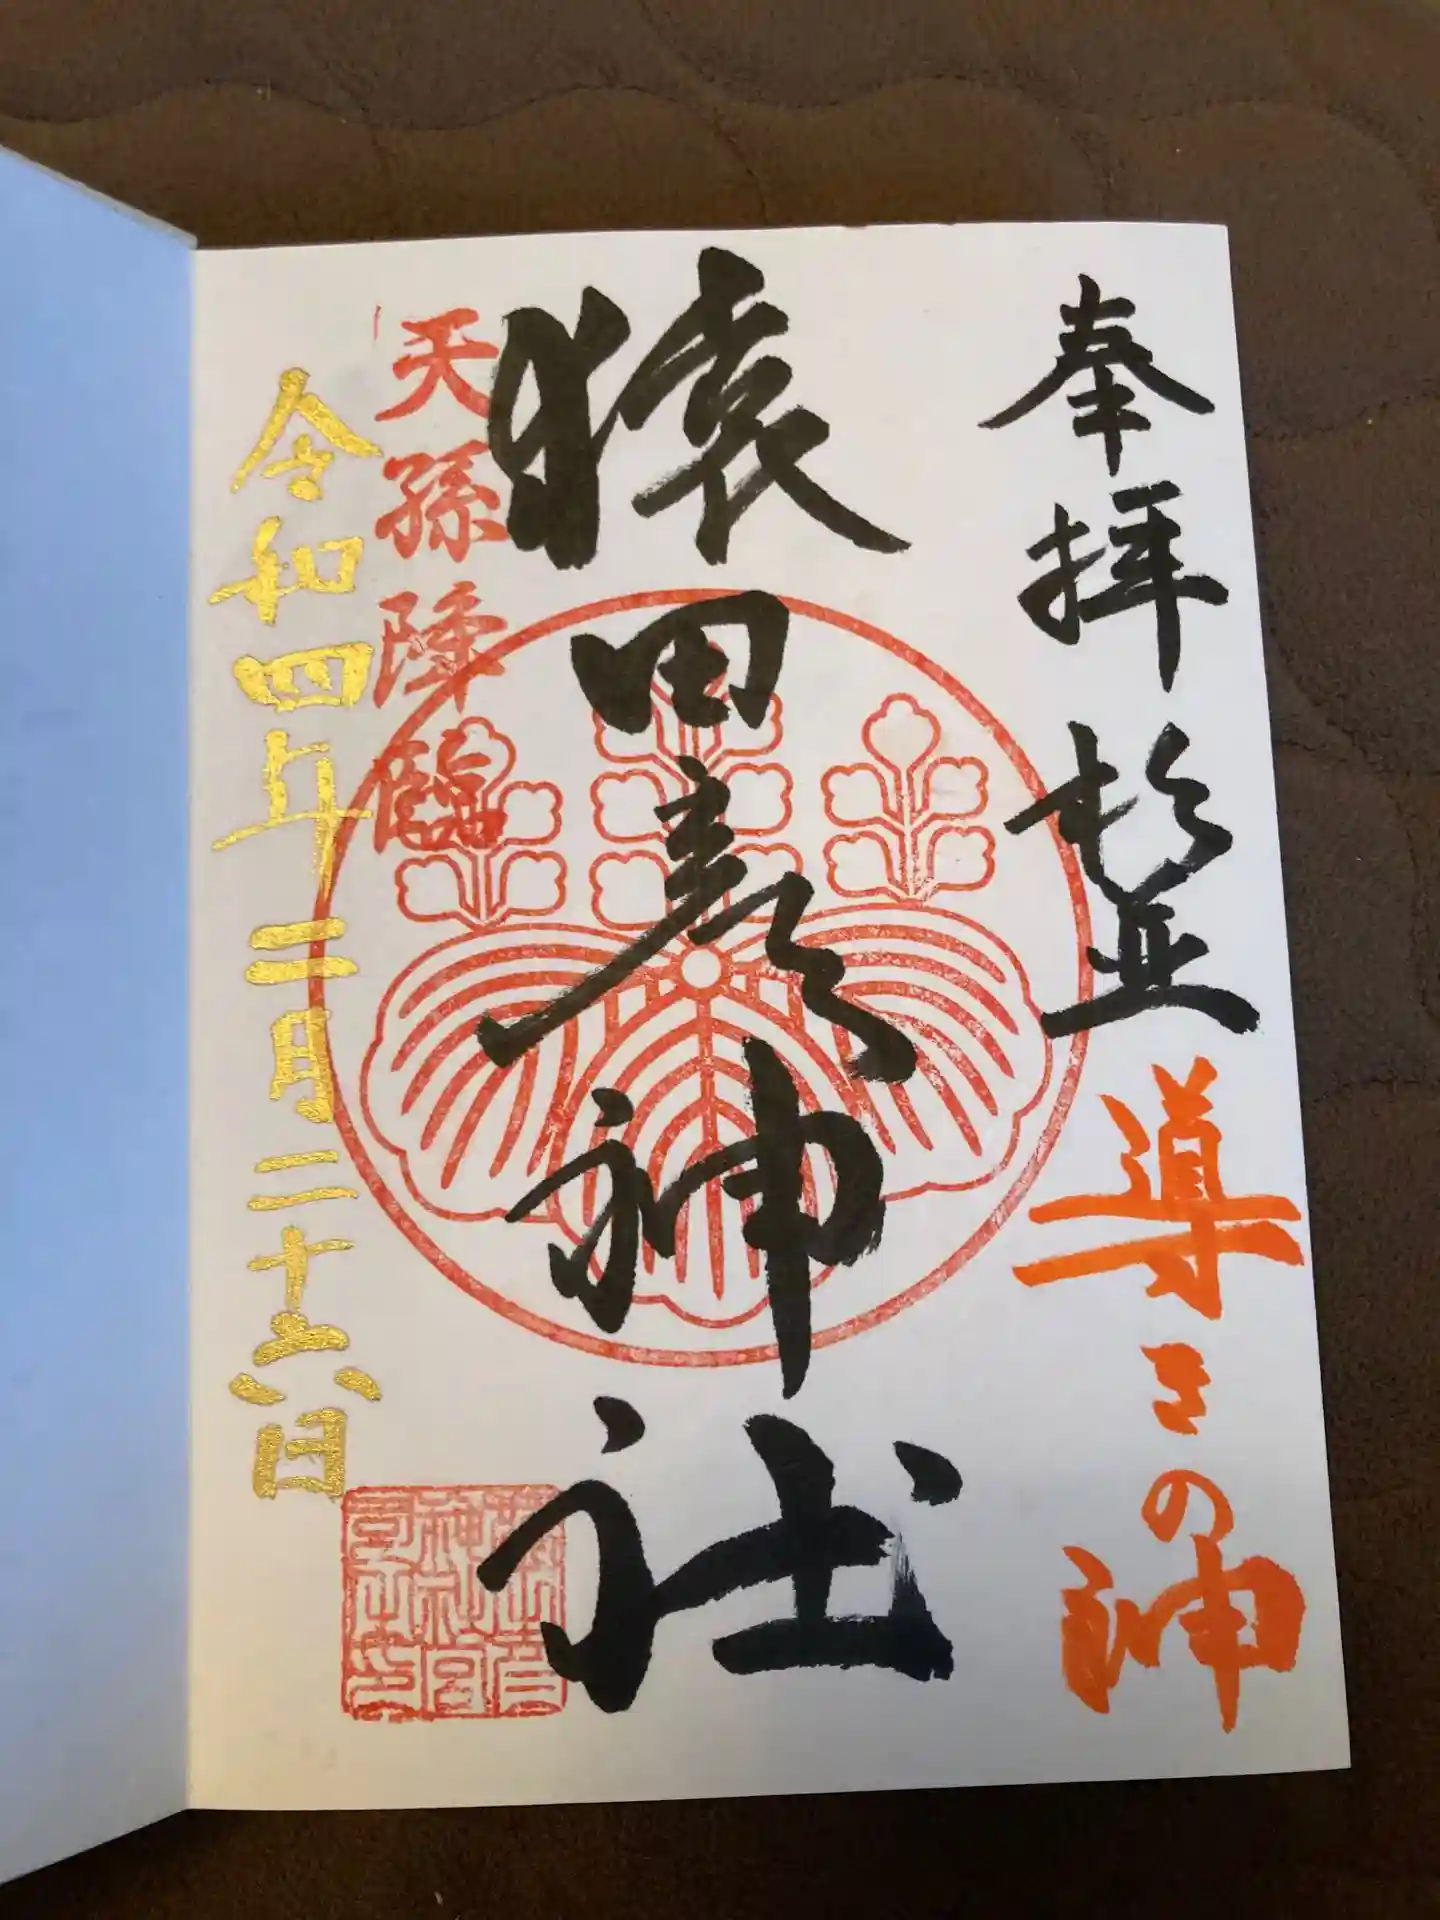 奉拝 杉並
導きの神
猿田彦神社
天孫降臨
令和四年三月二十六日